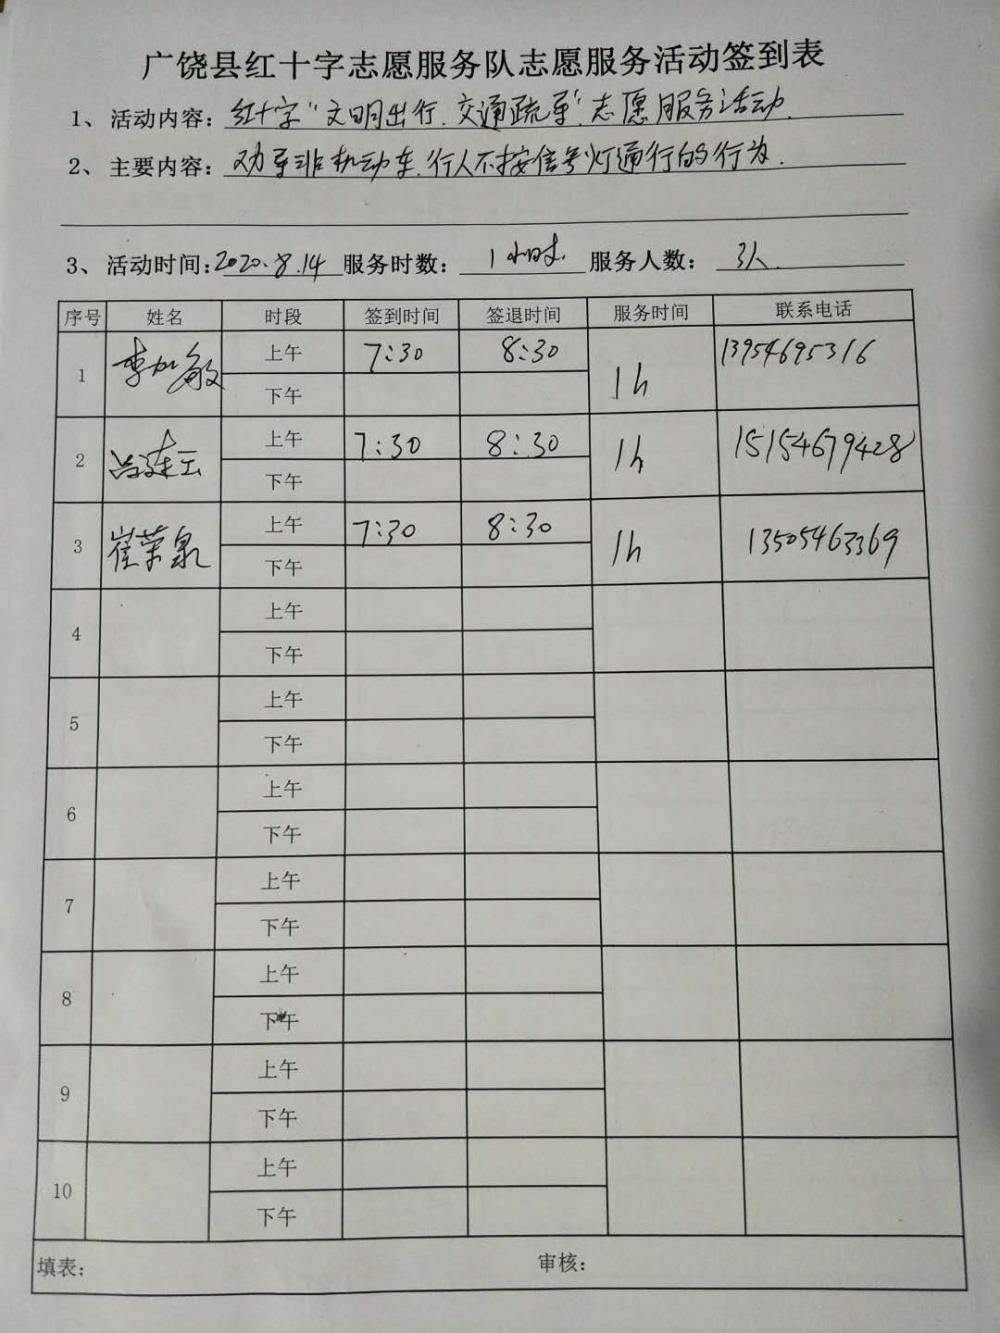 广饶县红十字志愿服务队志愿服务活动签到表
1、活动内容：红十字“文明出行.交通疏导”志愿服务活动.
2、主要内容：劝导非机动车.行人不按信号灯通行的行为.
3、活动时间：2020.8.14 服务时数：1小时. 服务人数：3人.
序号 姓名 时段 签到时间 签退时间 服务时间 联系电话
1 李加敏 上午 7:30 8:30 1h 13954695316
下午
2 吕连云 上午 7:30 8:30 1h 15154679428
下午
3 崔荣泉 上午 7:30 8:30 1h 13505463369
下午
4 上午
下午
5 上午
下午
6 上午
下午
7 上午
下午
8 上午
下午
9 上午
下午
10 上午
下午
填表： 审核：